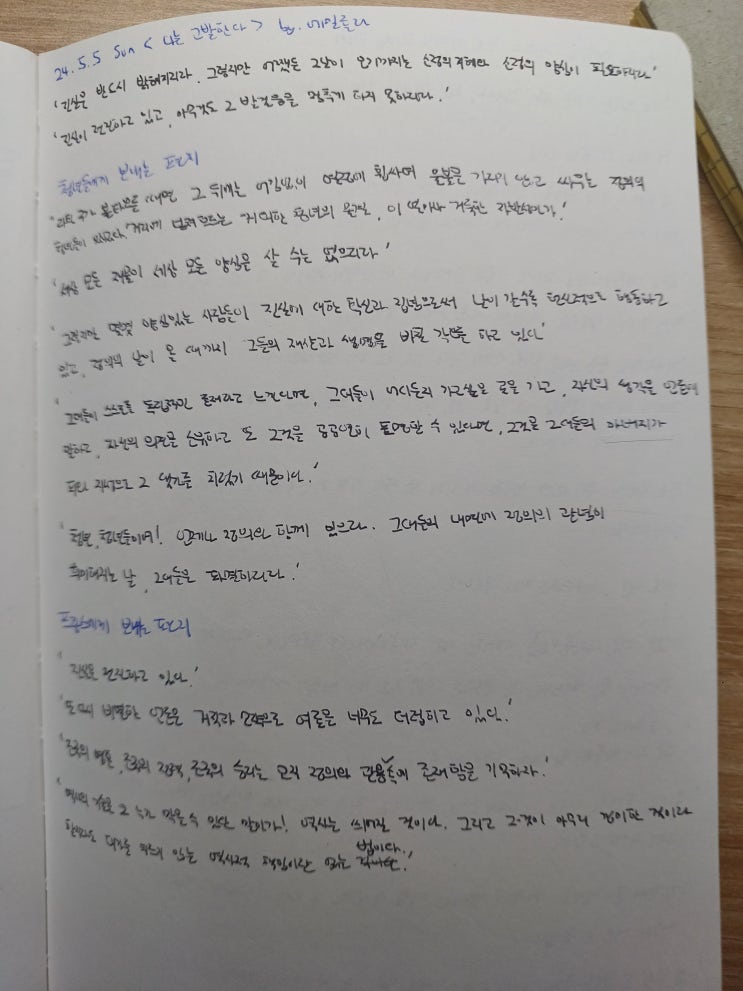 24.5.5 Sun <나는 고발한다> by. 에밀졸라
'진실은 반드시 밝혀지리라. 그렇지만 어쨌든 그날이 오기까지는 선정의 지혜와 선정의 양심이 필요하니라'
'진실이 전진하고 있고, 아무것도 그 발걸음을 멈추게 하지 못하리라.'
청년들에게 보내는 편지
불타오를 때면 그 뒤에는 어김없이 열정에 휩싸여 울분을 가지고 싸우는 정의의
청년들이 있었다. 거리에 넘쳐흐르는 거대한 청년의 물결, 이 얼마나 거룩한
'세상 모든 재물이 세상 모든 양심을 살 수는 없으리라'
'그렇지만 몇몇 양심있는 사람들이 진실에 대한 확신과 집념으로써 날이 갈수록 헌신적으로 행동하고
있고, 정의의 날이 올 때까지 그들의 재산과 생명을 바칠 각오를 하고 있다'
'그대들이 스스로 독립적인 존재라고 느낀다면, 그대들이 어디든지 가고싶은 곳을 가고, 자신의 생각을 언론에
말하고, 자신의 의견을 소유하고 또 그것을 공공연히 표명할 수 있다면, 그것은 그대들의 아버지가
피와 지성으로 그 댓가를 치렀기 때문이다.'
'청년, 청년들이여! 언제나 정의와 함께 있으라. 그대들의 내면에 정의의 관념이
희미해지는 날, 그대들은 파멸하리라.'
프랑스에게 보내는 편지
'진실은 전진하고 있다.'
'또 다시 비열한 언론은 거짓과 으로 여론을 너무도 더럽히고 있다.'
'조국의 명예, 조국의 장래, 조국의 승리는 오직 정의와 관용 속에 존재함을 기억하자.'
'역사의 기술을 그 누가 막을 수 있단 말인가! 역사는 씌어질 것이다. 그리고 그것이 아무리 경미한 것이라
할지라도 대가를 치르지 않는 역사적 책임이란 없는 법이다.'